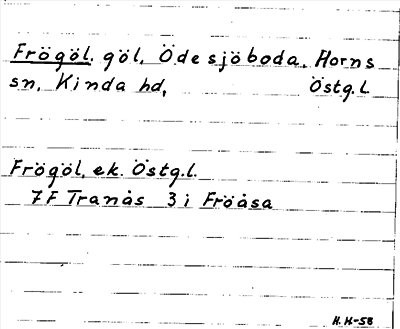 Frögöl, göl, Ödesjöboda, Horns
sn, Kinda hd, Östg.L
Frögöl, ek. Östg.l.
7F Tranås 3i Fröåsa
H.H-58